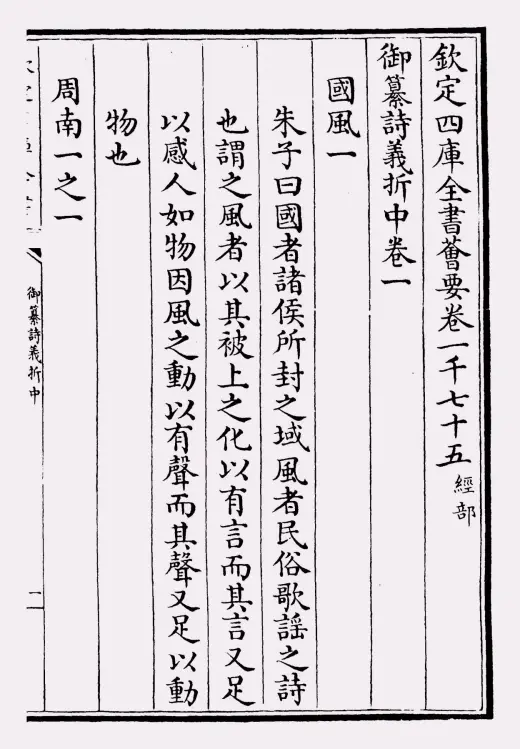 欽定四庫全書薈要卷一千七十五 經部
御纂詩義折中卷一
國風一
朱子曰國者諸侯所封之域風者民俗歌謡之詩
也謂之風者以其被上之化以有言而其言又足
以感人如物因風之動以有聲而其聲又足以動
物也
周南一之一
御纂詩義折中